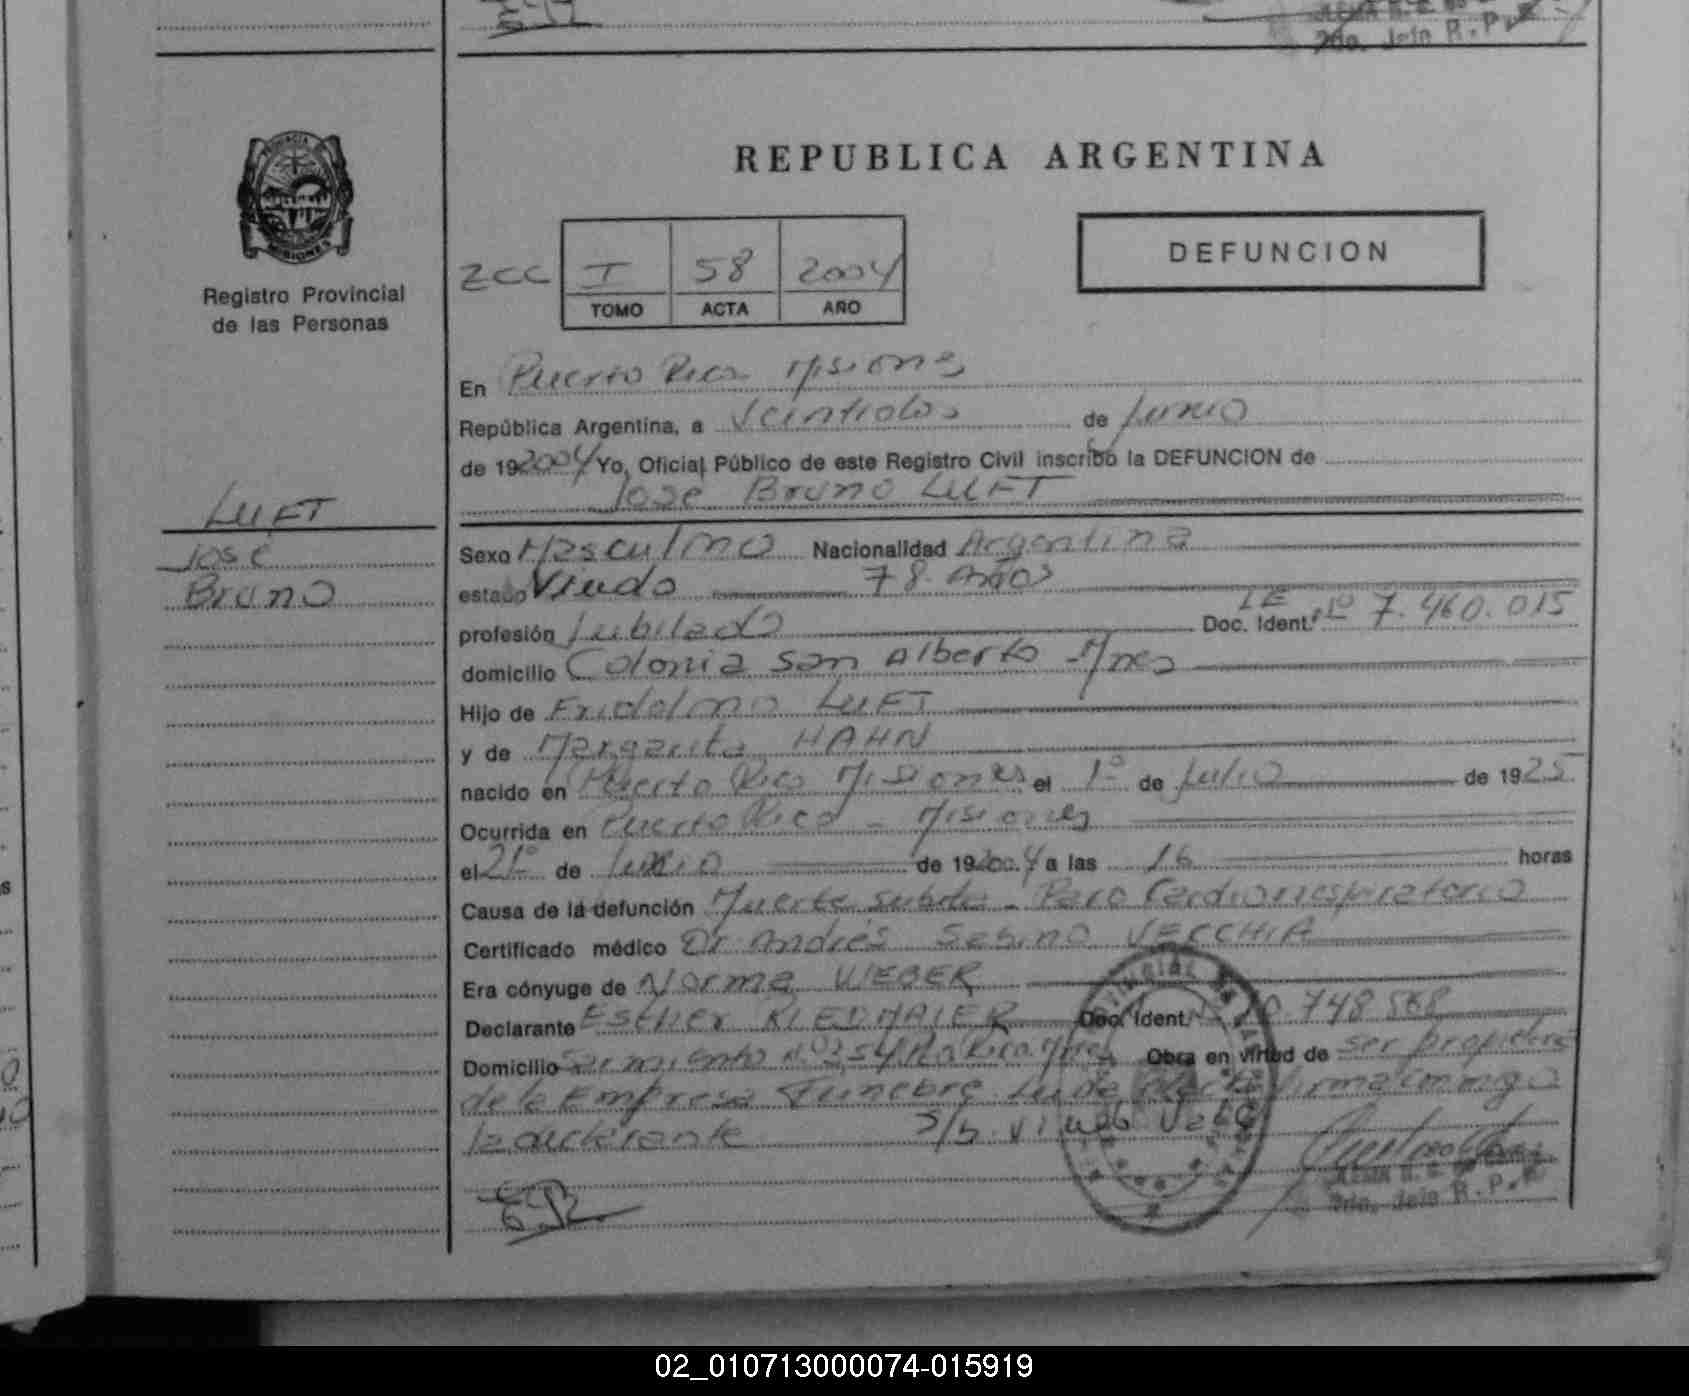 2do. Jefe R.P.
REPUBLICA ARGENTINA
PROVINCIA DE
MISIONES
Registro Provincial
de las Personas
DEFUNCION
ZCC I 58 2004
TOMO ACTA AÑO
En Puerto Rico Misiones
República Argentina, a Veintidos de Junio
de 192004 Yo, Oficial Público de este Registro Civil inscribo la DEFUNCION de
Jose Bruno LUFT
LUFT
José
Bruno
Sexo Masculino Nacionalidad Argentina
estado Viudo 78 Años
profesión Jubilado Doc. Ident. LE Nº 7.460.015
domicilio Colonia San Alberto - Mnes
Hijo de Fridolino LUFT
y de Margarita HAHN
nacido en Puerto Rico Misiones el 1º de Julio de 1925
Ocurrida en Puerto Rico - Misiones
el 21º de Junio de 192004 a las 16 horas
Causa de la defunción Muerte subita - Paro Cardiorrespiratorio
Certificado médico Dr Andrés Sabino VECCHIA
Era cónyuge de Norma WEBER
Declarante Esther RIEDMAIER Doc. Ident. 10.748.568
Domicilio Sarmiento Nº 254 Pto Rico Mnes Obra en virtud de ser propietaria
de la Empresa Funebre firma conmigo
la declarante S/b Viudo Vale
2do. Jefe R.P.
02_010713000074-015919